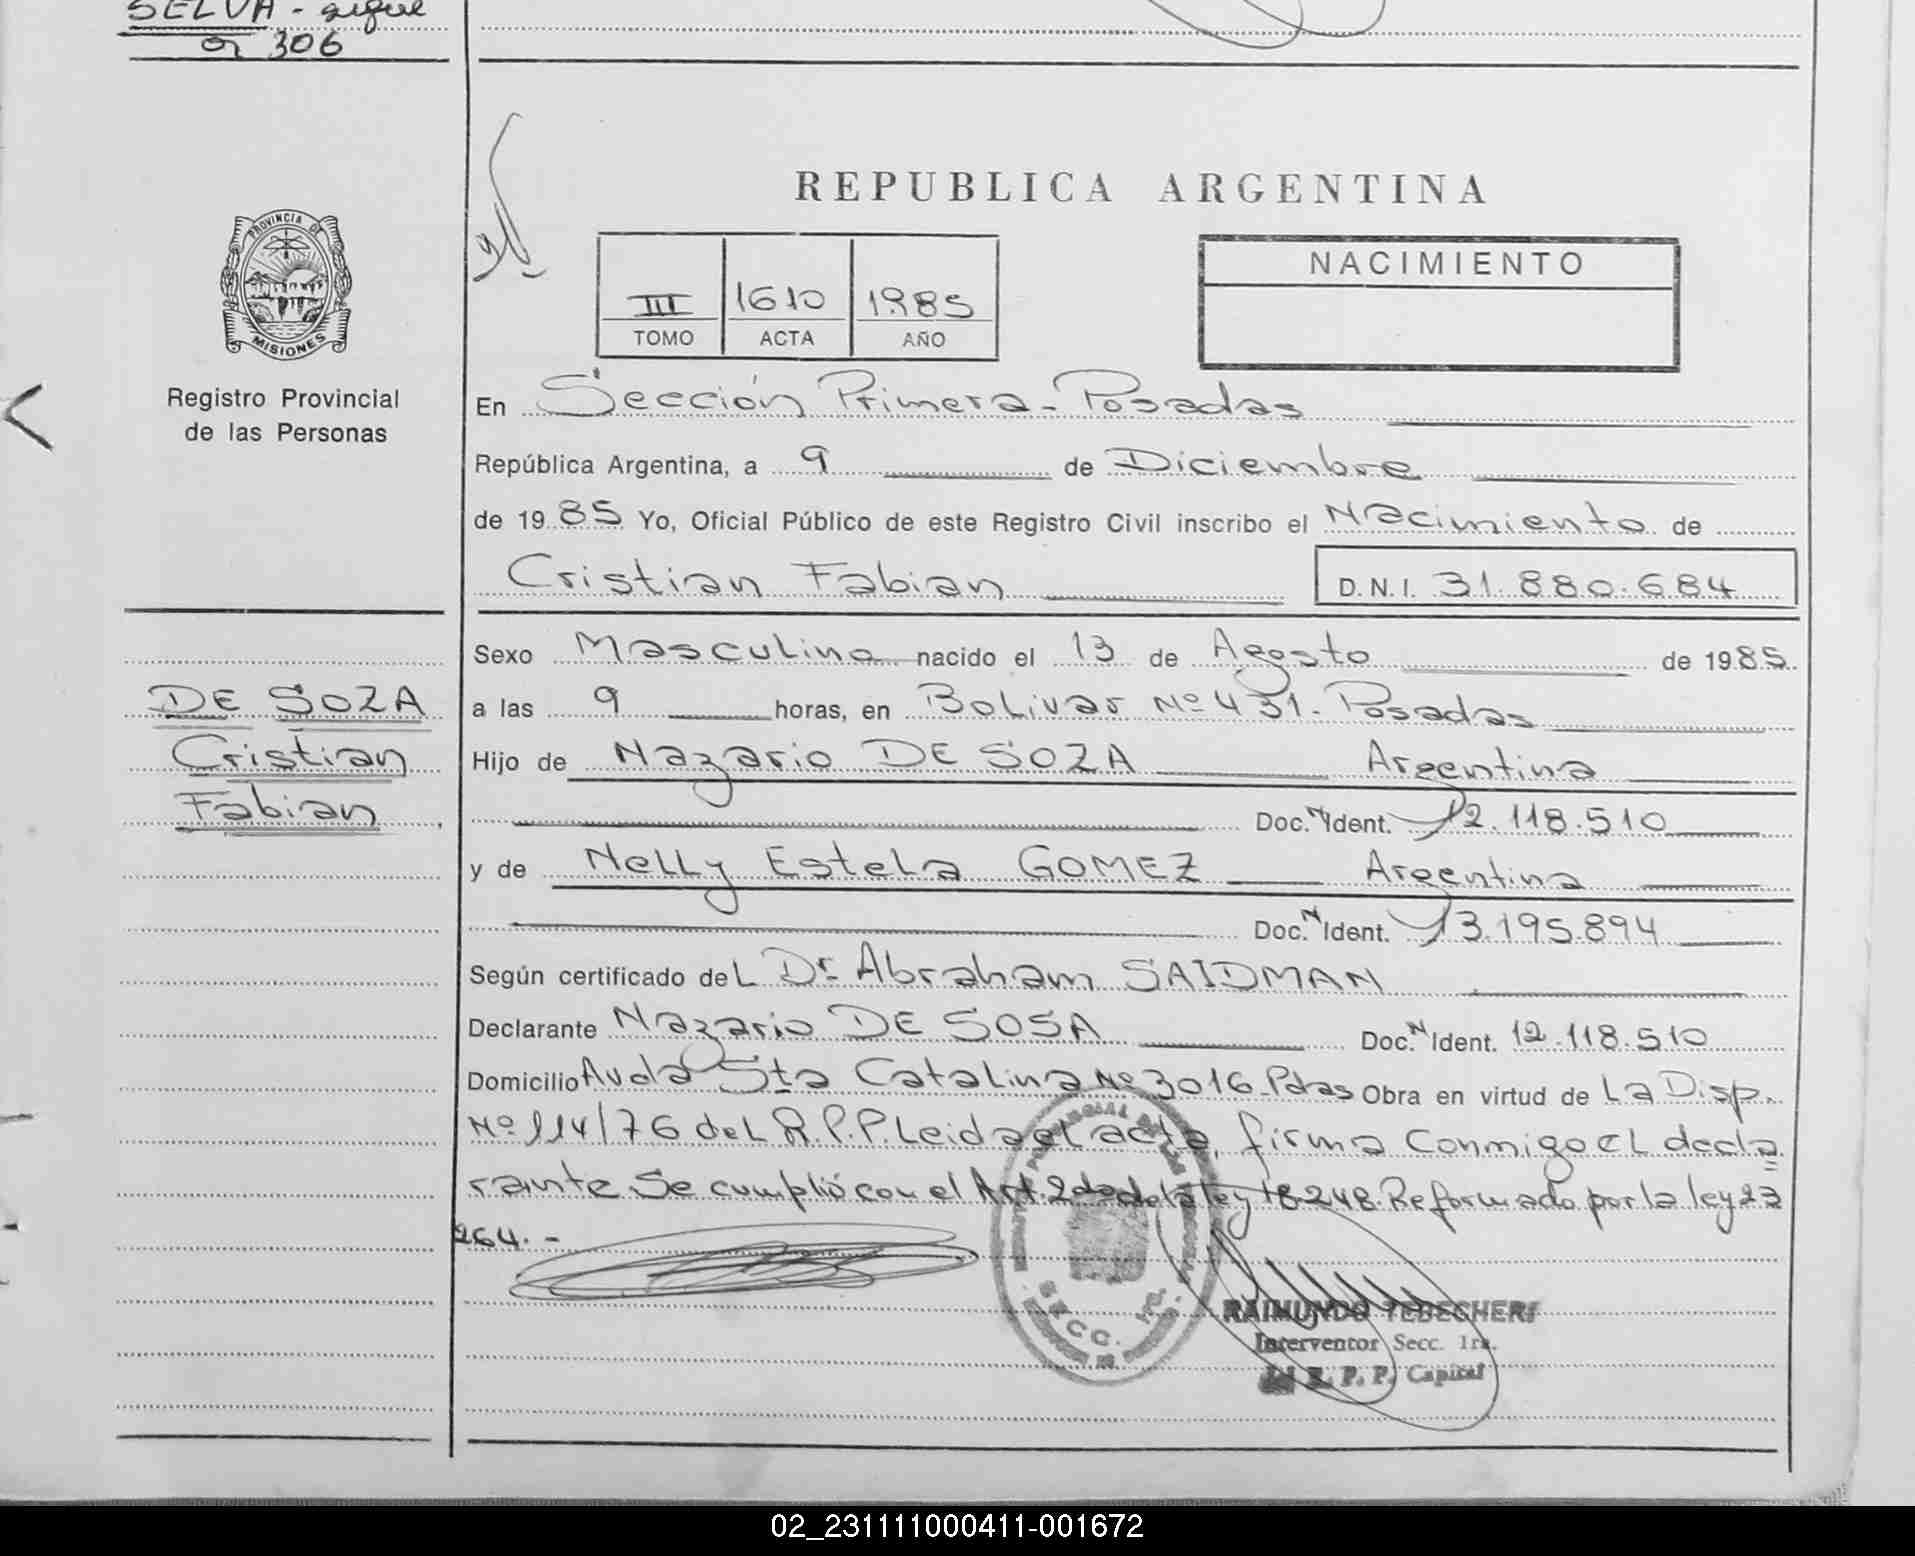 SELVA - sigue
en 306
REPUBLICA ARGENTINA
PROVINCIA DE
MISIONES
Registro Provincial
de las Personas
III 1610 1985
TOMO ACTA AÑO
NACIMIENTO
En Sección Primera - Posadas
República Argentina, a 9 de Diciembre
de 1985 Yo, Oficial Público de este Registro Civil inscribo el Nacimiento de
Cristian Fabian D.N.I. 31.880.684
Sexo Masculino nacido el 13 de Agosto de 1985
DE SOZA
Cristian
Fabian
a las 9 horas, en Bolivar Nº 431. Posadas
Hijo de Nazario DE SOZA Argentina
Doc. N Ident. 12.118.510
y de Nelly Estela GOMEZ Argentina
Doc. N Ident. 13.195.894
Según certificado del Dr. Abraham SAIDMAN
Declarante Nazario DE SOSA Doc. N Ident. 12.118.510
Domicilio Avda Sta Catalina Nº 3016 Pdas Obra en virtud de La Disp.
Nº 114/76 del R.P.P. Leida el acta, firma conmigo el decla
rante Se cumplió con el Art. 2do de la ley 18.248. Reformado por la ley 23
264. -
SECC. 1ra.
RAIMUNDO TEBECHERI
Interventor Secc. 1ra.
R. P. P. Capital
02_231111000411-001672